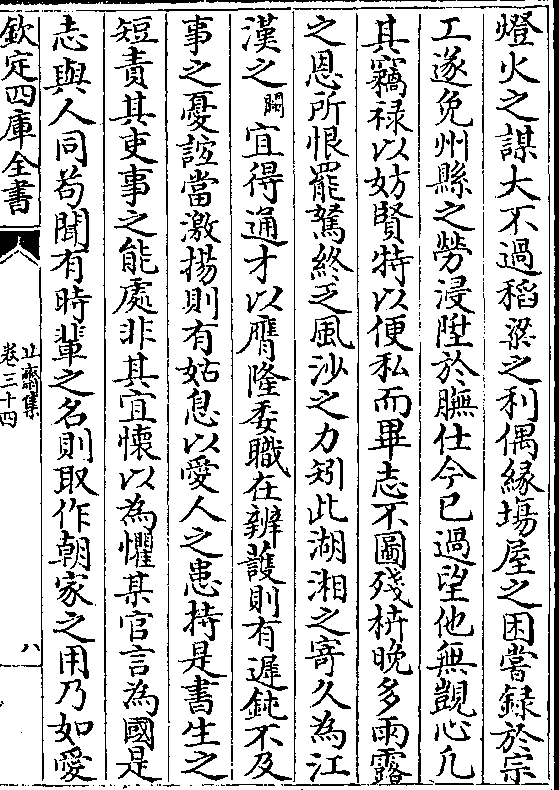 燈火之謀大不過稻粱之利偶縁塲屋之困嘗録於宗
工遂免州縣之勞浸陞於膴仕今已過望他無覬心凡
其竊禄以妨賢特以便私而畢志不圖殘枿晚多雨露
之恩所恨罷駑終乏風沙之力矧此湖湘之寄久為江
漢之闕宜得通才以膺隆委職在辨護則有遲鈍不及
事之憂誼當激揚則有姑息以愛人之患持是書生之
短責其吏事之能處非其宜懐以為懼某官言為國是
志與人同苟聞有時輩之名則取作朝家之用乃如愛
欽定四庫全書
止齋集
卷三十四
八